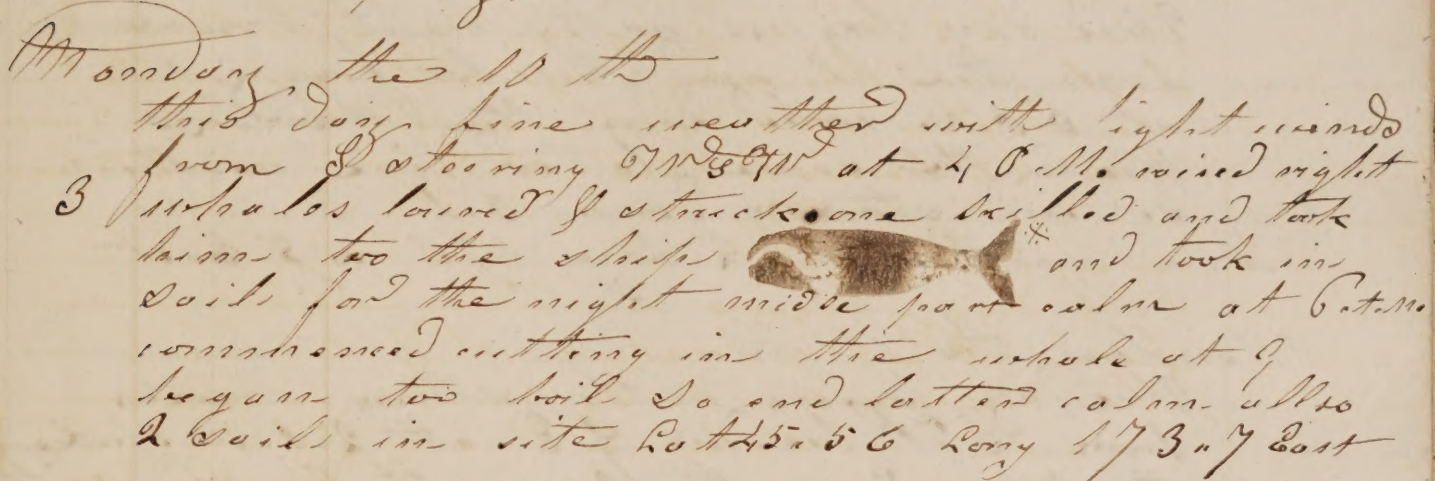 Monday the 10 th
this day fine weather with light winds
from S steering W S W at 4 P.M. raised right
3 whales lowred & struck one killed and took
him too the ship and took in
sail for the night middle part calm at 6 A.M.
commenced cutting in the whale at 9
began too boil So end latter calm allso
2 sail in site Lat 45.56 Long 173.7 East